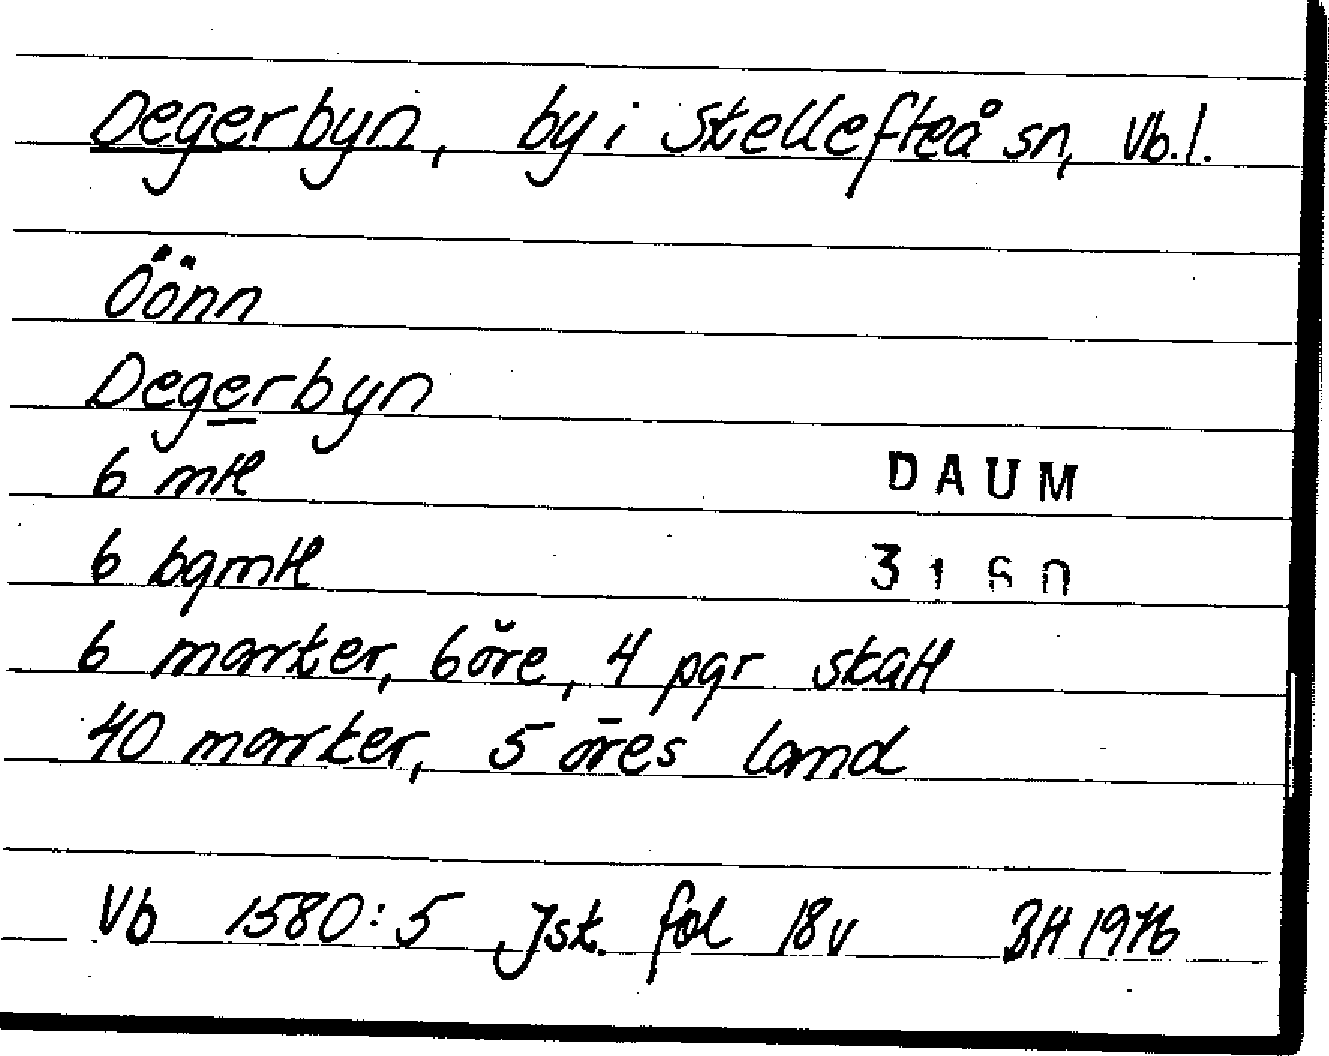 Degerbyn, by i Skellefteå sn, Vb. l.
Öönn
Degerbyn
6 mtl
DAUM
6 bgmtl
3160
6 marker, 6 öre, 4 pgr skatt
40 marker, 5 öres land
Vb 1580:5 Jsk. fol 18v BH 1976